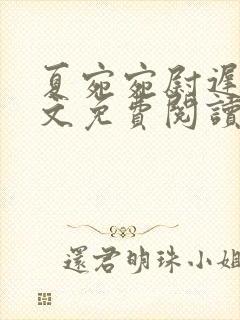 夏宛宛尉遲
文免費閱讀
還君明珠小姐